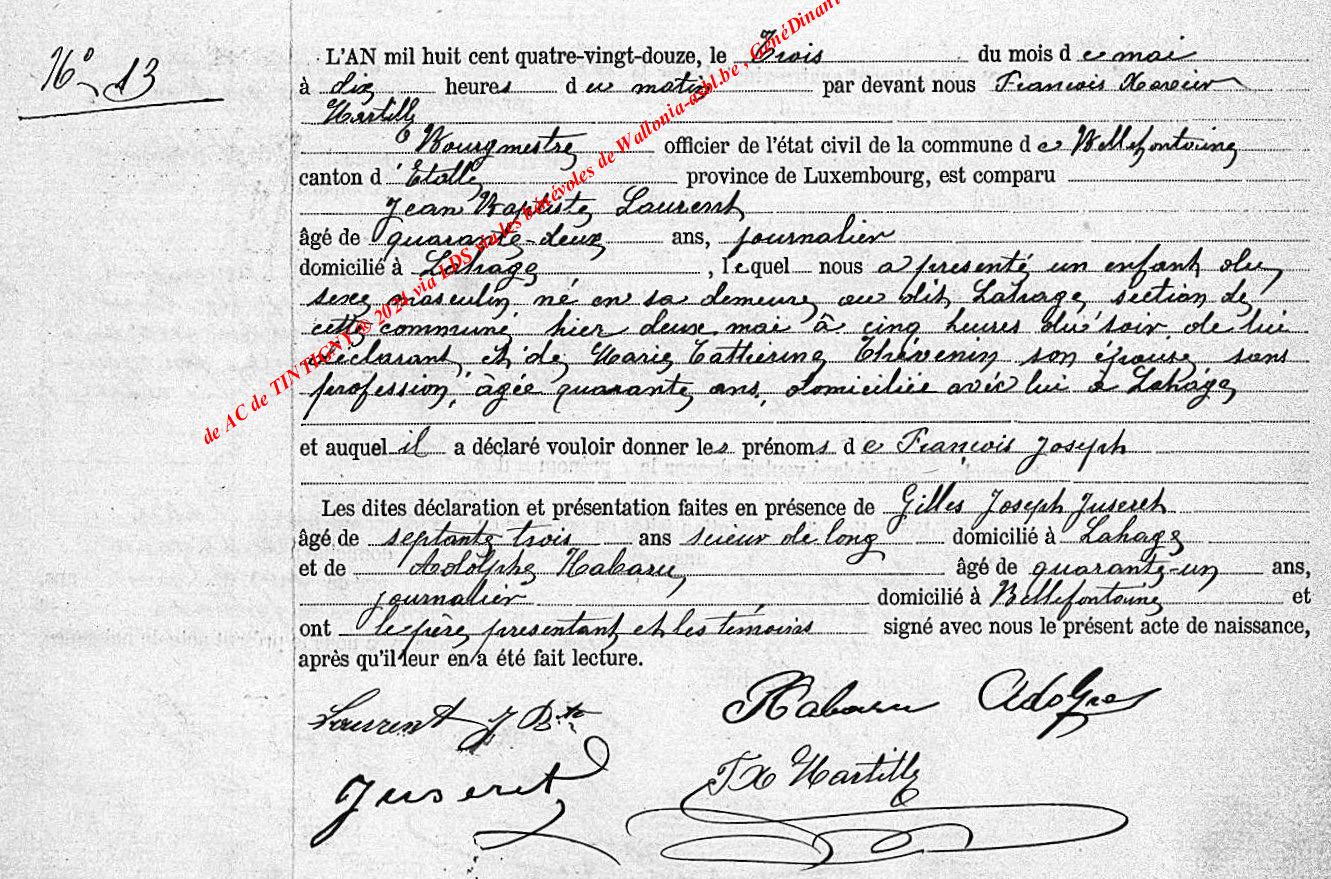 N° 13
L'AN mil huit cent quatre-vingt-douze, le Trois du mois de mai
à dix heures du matin par devant nous François Xavier
Martilly
Bourgmestre officier de l'état civil de la commune de Bellefontaine
canton d'Etalle province de Luxembourg, est comparu
Jean Baptiste Laurent
âgé de quarante-deux ans, journalier
domicilié à Lahage, lequel nous a présenté un enfant du
sexe masculin né en sa demeure au dit Lahage section de
cette commune hier deux mai à cinq heures du soir de lui
déclarant et de Marie Catherine Thévenin son épouse, sans
profession, âgée quarante ans, domiciliée avec lui à Lahage
et auquel il a déclaré vouloir donner les prénoms de François Joseph
Les dites déclaration et présentation faites en présence de Gilles Joseph Juseret
âgé de septante trois ans scieur de long domicilié à Lahage
et de Adolphe Habaru âgé de quarante-un ans,
journalier domicilié à Bellefontaine et
ont le père présentant et les témoins signé avec nous le présent acte de naissance,
après qu'il leur en a été fait lecture.
Laurent J Bte Habaru Adolphe
Juseret FX Martilly
de AC de TINTIGNY © 2021 via LDS via les bénévoles de Wallonia-asbl.be, GénéDinant